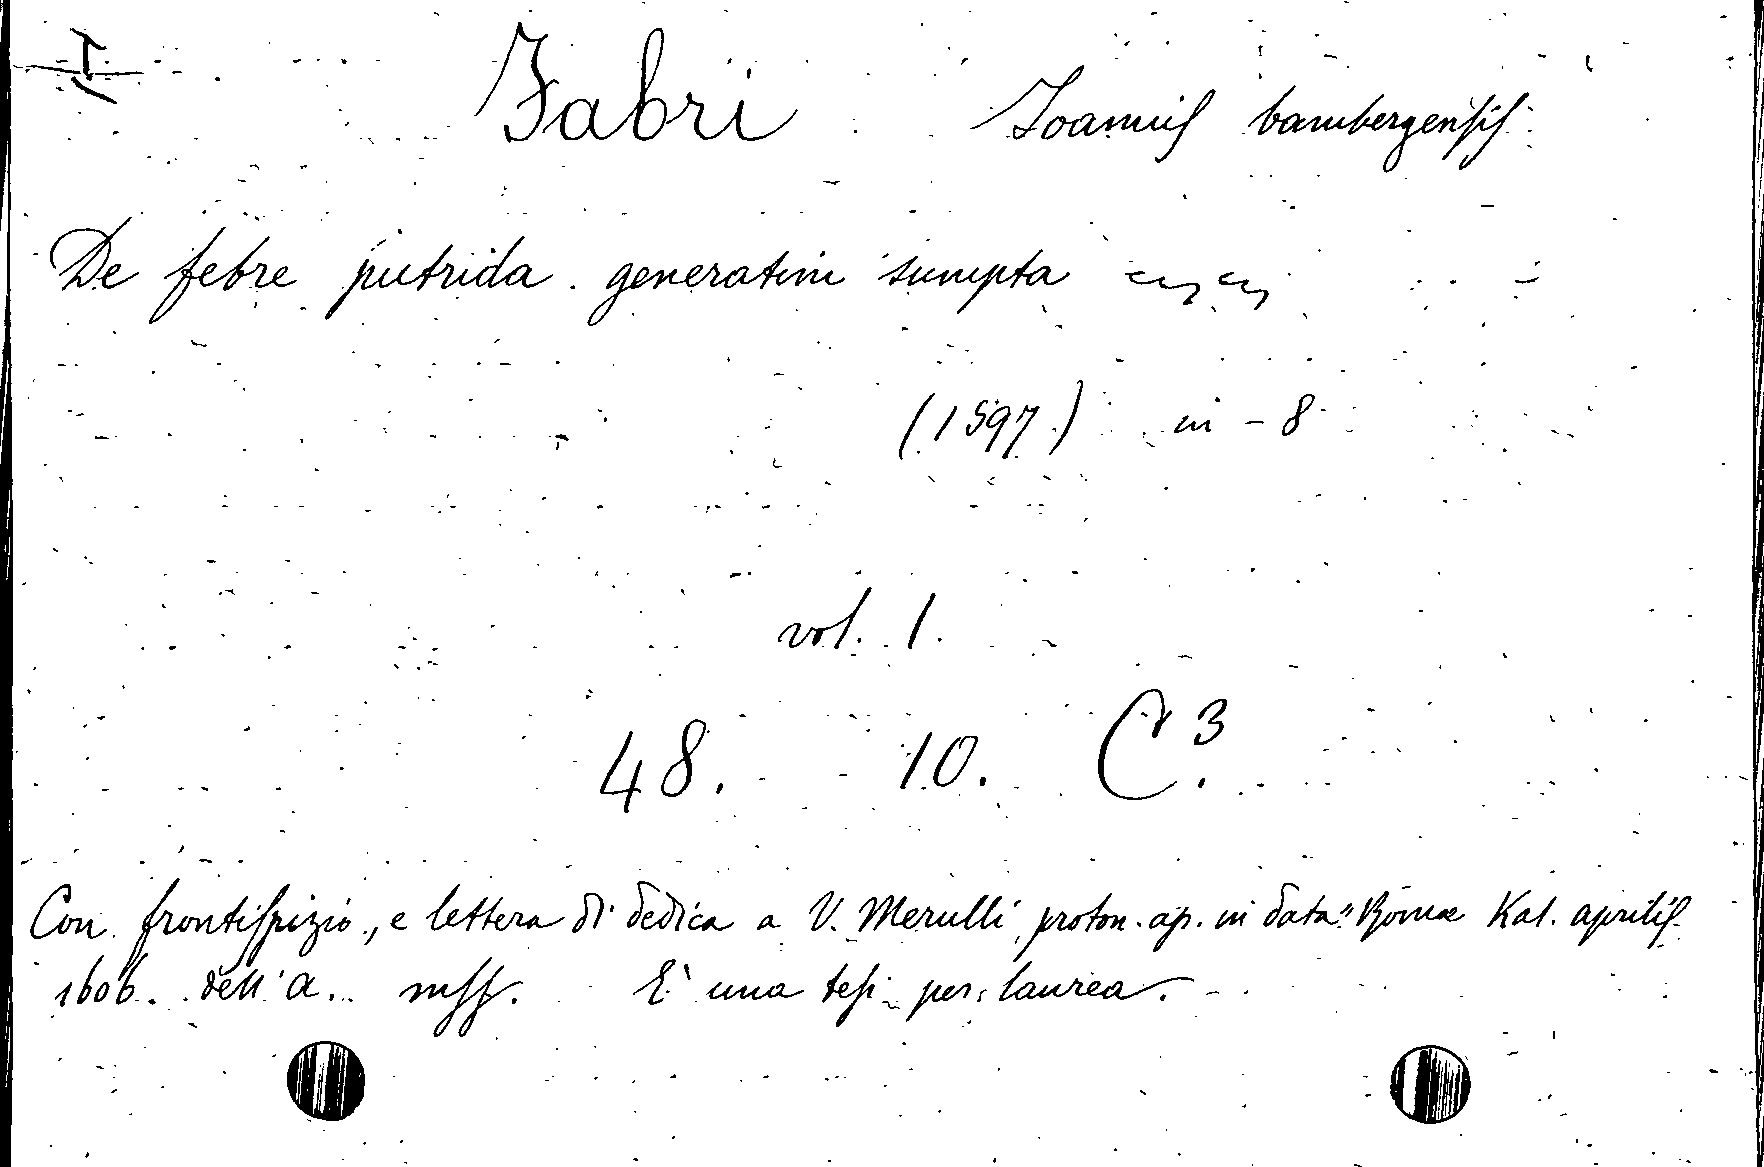 I
Fabri Joannis bambergensis
De febre putrida generatim sumpta
(1597) in-8
vol. 1.
48. 10. C.3
Con frontispizio, e lettera di dedica a V. Merulli, proton. ap. in data "Romæ Kal. aprilis
1606. dell'a. mss. È una tesi per laurea.